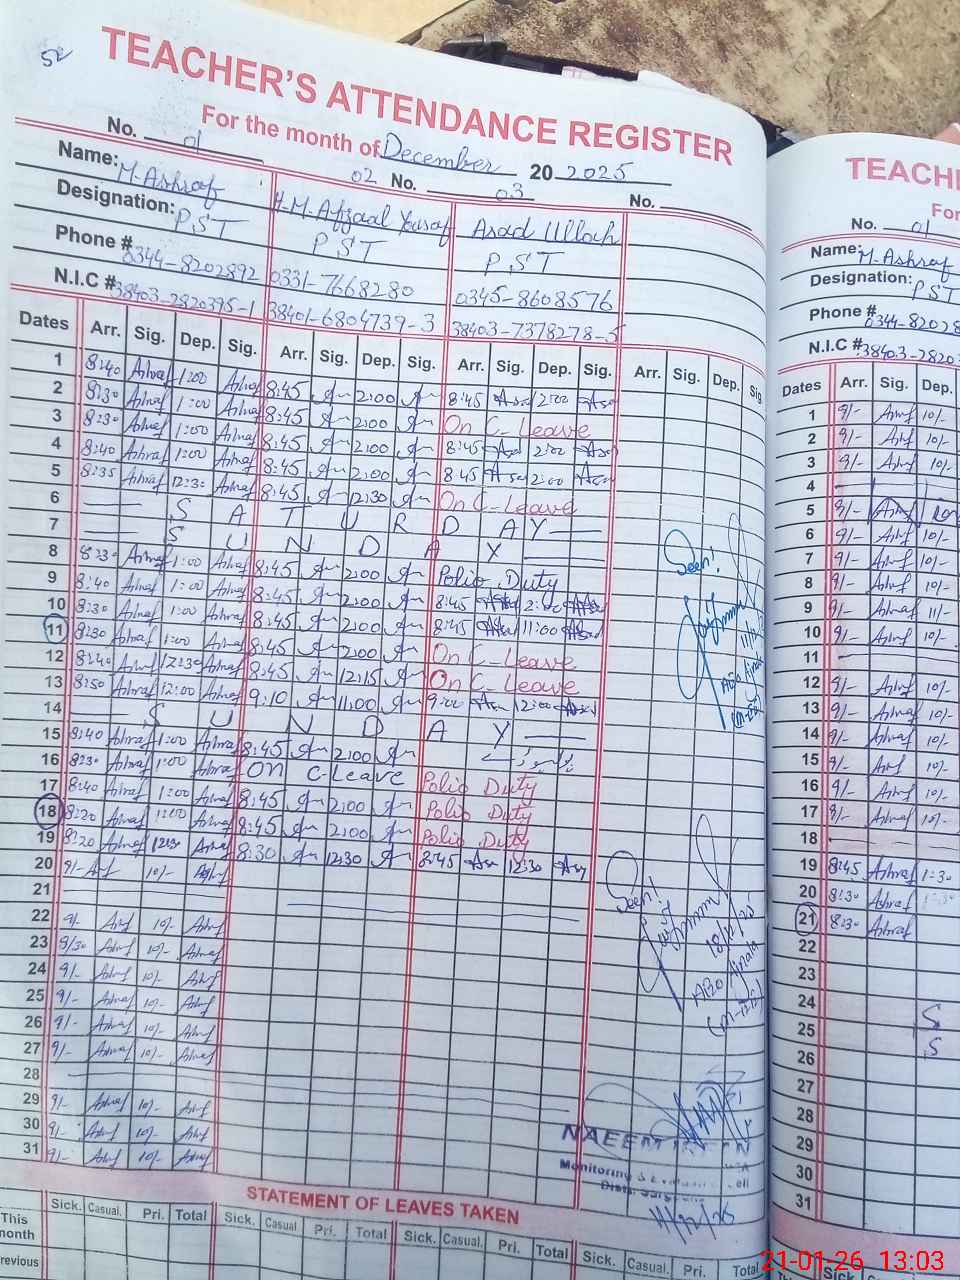 52
TEACHER'S ATTENDANCE REGISTER
For the month of December 20 2025
No. 01 02 No. 03 No.
Name: M. Ashraf H.M. Afzaal Yousaf Asad Ullah
Designation: PST PST PST
Phone # 0344-8202892 0331-7668280 0345-8608576
N.I.C # 38403-2820395-1 38401-6804739-3 38403-7378278-5
Dates Arr. Sig. Dep. Sig. Arr. Sig. Dep. Sig. Arr. Sig. Dep. Sig. Arr. Sig. Dep. Sig
1 8:40 Ashraf 1:00 Ashraf 8:45 2:00 8:45 Asa 2:00 Asa
2 8:30 Ashraf 1:00 Ashraf 8:45 2:00 On C-Leave
3 8:30 Ashraf 1:00 Ashraf 8:45 2:00 8:45 Asa 2:00 Asa
4 8:40 Ashraf 1:00 Ashraf 8:45 2:00 8:45 Asa 2:00 Asa
5 8:35 Ashraf 12:30 Ashraf 8:45 12:30 On C-Leave
6 SATURDAY
7 SUNDAY
8 8:30 Ashraf 1:00 Ashraf 8:45 2:00 Polio Duty
9 8:40 Ashraf 1:00 Ashraf 8:45 2:00 8:45 Asa 2:00 Asa
10 8:30 Ashraf 1:00 Ashraf 8:45 2:00 8:45 Asa 11:00 Asad
11 8:30 Ashraf 1:00 Ashraf 8:45 2:00 On C-Leave
12 8:40 Ashraf 12:30 Ashraf 8:45 12:15 On C-Leave
13 8:50 Ashraf 12:00 Ashraf 9:10 11:00 9:00 Asa 12:00 Asad
14 SUNDAY
15 8:40 Ashraf 1:00 Ashraf 8:45 2:00
16 8:30 Ashraf 1:00 Ashraf ON C-Leave Polio Duty
17 8:40 Ashraf 1:00 Ashraf 8:45 2:00 Polio Duty
18 8:20 Ashraf 1:00 Ashraf 8:45 2:00 Polio Duty
19 8:20 Ashraf 12:30 Ashraf 8:30 12:30 8:45 Asa 12:30 Asa
20 9/- Ashf 10/- Ashf
21
22 9/- Ashf 10/- Ashraf
23 9/30 Ashraf 10/- Ashraf
24 9/- Ashraf 10/- Ashraf
25 9/- Ashraf 10/- Ashraf
26 9/- Ashraf 10/- Ashraf
27 9/- Ashraf 10/- Ashraf
28
29 9/- Ashraf 10/- Ashf
30 9/- Ashf 10/- Ashf
31 9/- Ashf 10/- Ashraf
Seen!
Seen!
18/12/25
NAEEM
Monitoring
STATEMENT OF LEAVES TAKEN
Sick. Casual. Pri. Total Sick. Casual Pri. Total Sick. Casual. Pri. Total Sick. Casual Pri. Total
This month
revious
TEACHE
For
No. 01
Name: M. Ashraf
Designation: PST
Phone # 0344-82028
N.I.C # 38403-2820
Dates Arr. Sig. Dep.
1 9/- Ashraf 10/-
2 9/- Ashf 10/-
3 9/- Ashf 10/-
4
5 9/- Ashf 10/-
6 9/- Ashraf 10/-
7 9/- Ashf 10/-
8 9/- Ashf 10/-
9 9/- Ashraf 11/-
10 9/- Ashf 10/-
11
12 9/- Ashf 10/-
13 9/- Ashraf 10/-
14 9/- Ashraf 10/-
15 9/- Ashf 10/-
16 9/- Ashraf 10/-
17 9/- Ashraf 10/-
18
19 8:45 Ashraf 1:30
20 8:30 Ashraf 1:30
21 8:30 Ashraf
22
23
24 S
25 S
26
27
28
29
30
31
Sick
21-01-26 13:03